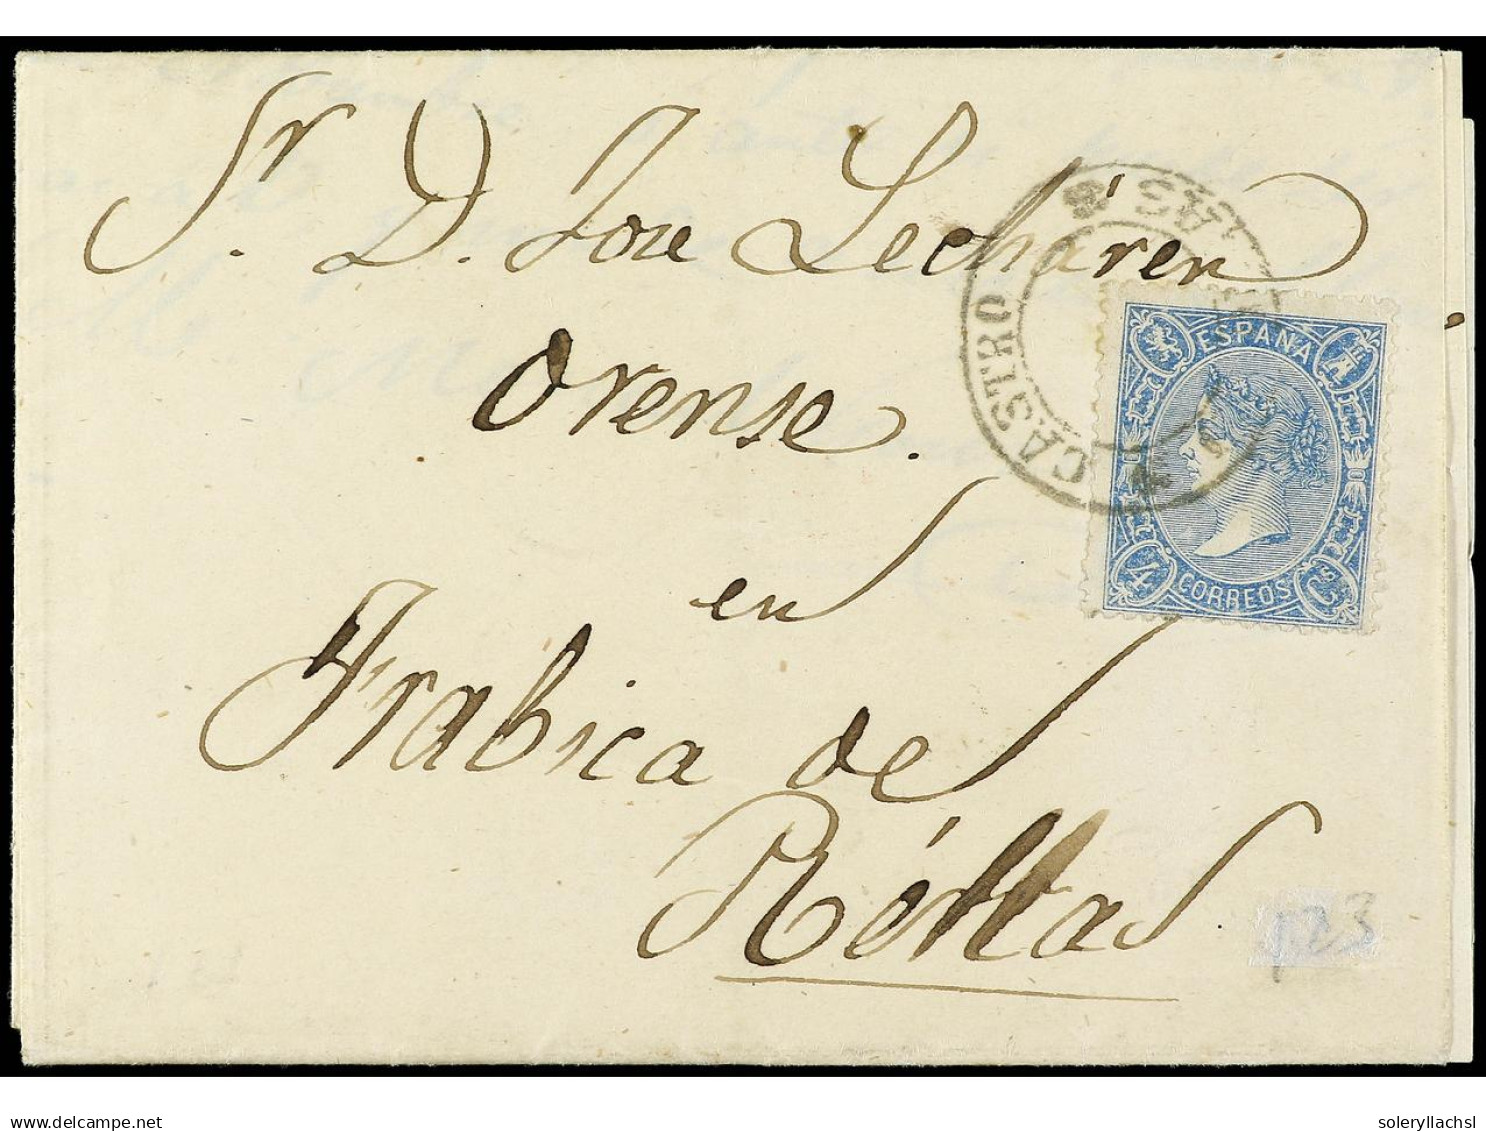 Sr. D. Jose Lecháren
Orense.
en
Frabica de
CASTRO
ESPAÑA
4
CORREOS
Cs
123
delcampe.net
soleryllachsl